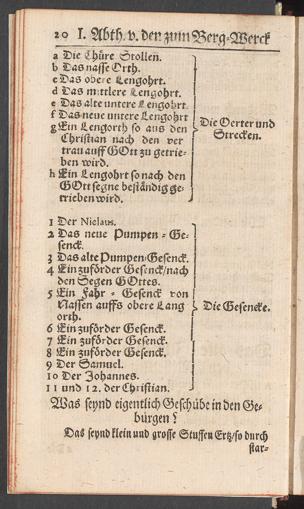 20 I. Abth. v. den zum Berg-Werck
a Die Thüre Stollen.
b Das nasse Orth.
c Das obere Lengohrt.
d Das mittlere Lengohrt.
e Das alte untere Lengohrt
f Das neue untere Lengohrt
g Ein Lengorth so aus den
Christian nach den ver
trau auff GOtt zu getrie-
ben wird.
h Ein Lengohrt so nach den
GOtt segne beständig ge-
trieben wird.
Die Oerter und
Strecken.
1 Der Niclaus.
2 Das neue Pumpen-Ge-
senck.
3 Das alte Pumpen Gesenck.
4 Ein zuförder Gesenck/nach
den Seegen GOttes.
5 Ein Fahr-Gesenck von
Nassen auffs obere Lang
orth.
6 Ein zuförder Gesenck.
7 Ein zuförder Gesenck.
8 Ein zuförder Gesenck.
9 Der Samuel.
10 Der Johannes.
11 und 12. der Christian.
Die Gesencke.
Was seynd eigentlich Geschübe in den Ge-
bürgen?
Das seynd klein und grosse Stuffen Ertz/so durch
star-